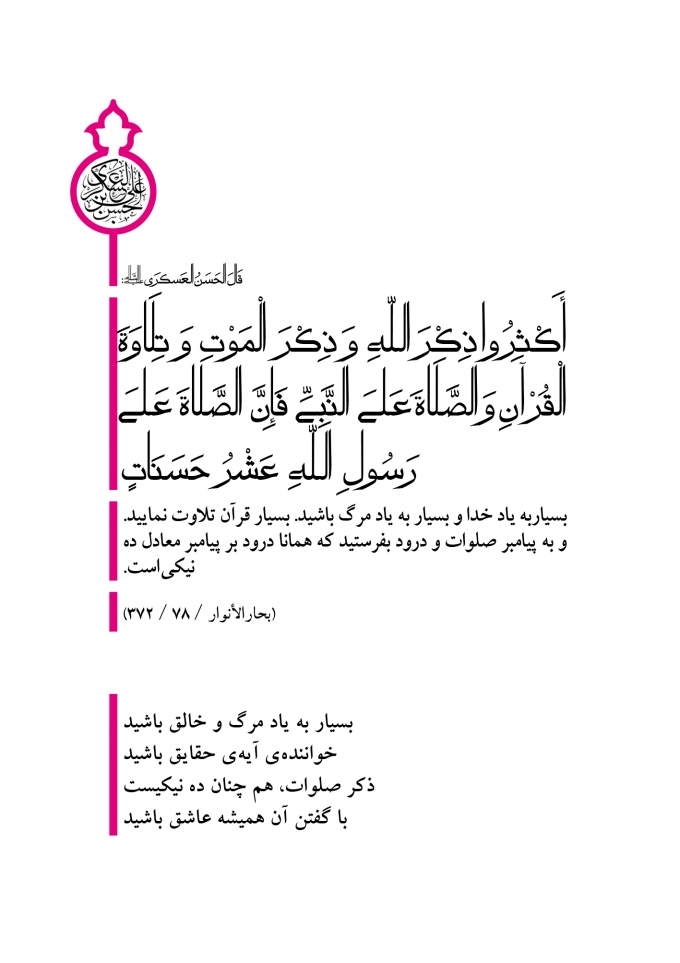 حسن بن علی العسکری
قَالَ الحَسَنُ العَسکَرَی علیه‌السلام:
أَکْثِرُوا ذِکْرَ اللّٰهِ وَ ذِکْرَ الْمَوْتِ وَ تِلَاوَةَ
الْقُرْآنِ وَ الصَّلَاةَ عَلَى النَّبِيِّ فَإِنَّ الصَّلَاةَ عَلَى
رَسُولِ اللّٰهِ عَشْرُ حَسَنَاتٍ
بسیاربه یاد خدا و بسیار به یاد مرگ باشید. بسیار قرآن تلاوت نمایید.
و به پیامبر صلوات و درود بفرستید که همانا درود بر پیامبر معادل ده
نیکی‌است.
(بحارالأنوار / ۷۸ / ۳۷۲)
بسیار به یاد مرگ و خالق باشید
خواننده‌ی آیه‌ی حقایق باشید
ذکر صلوات، هم چنان ده نیکیست
با گفتن آن همیشه عاشق باشید